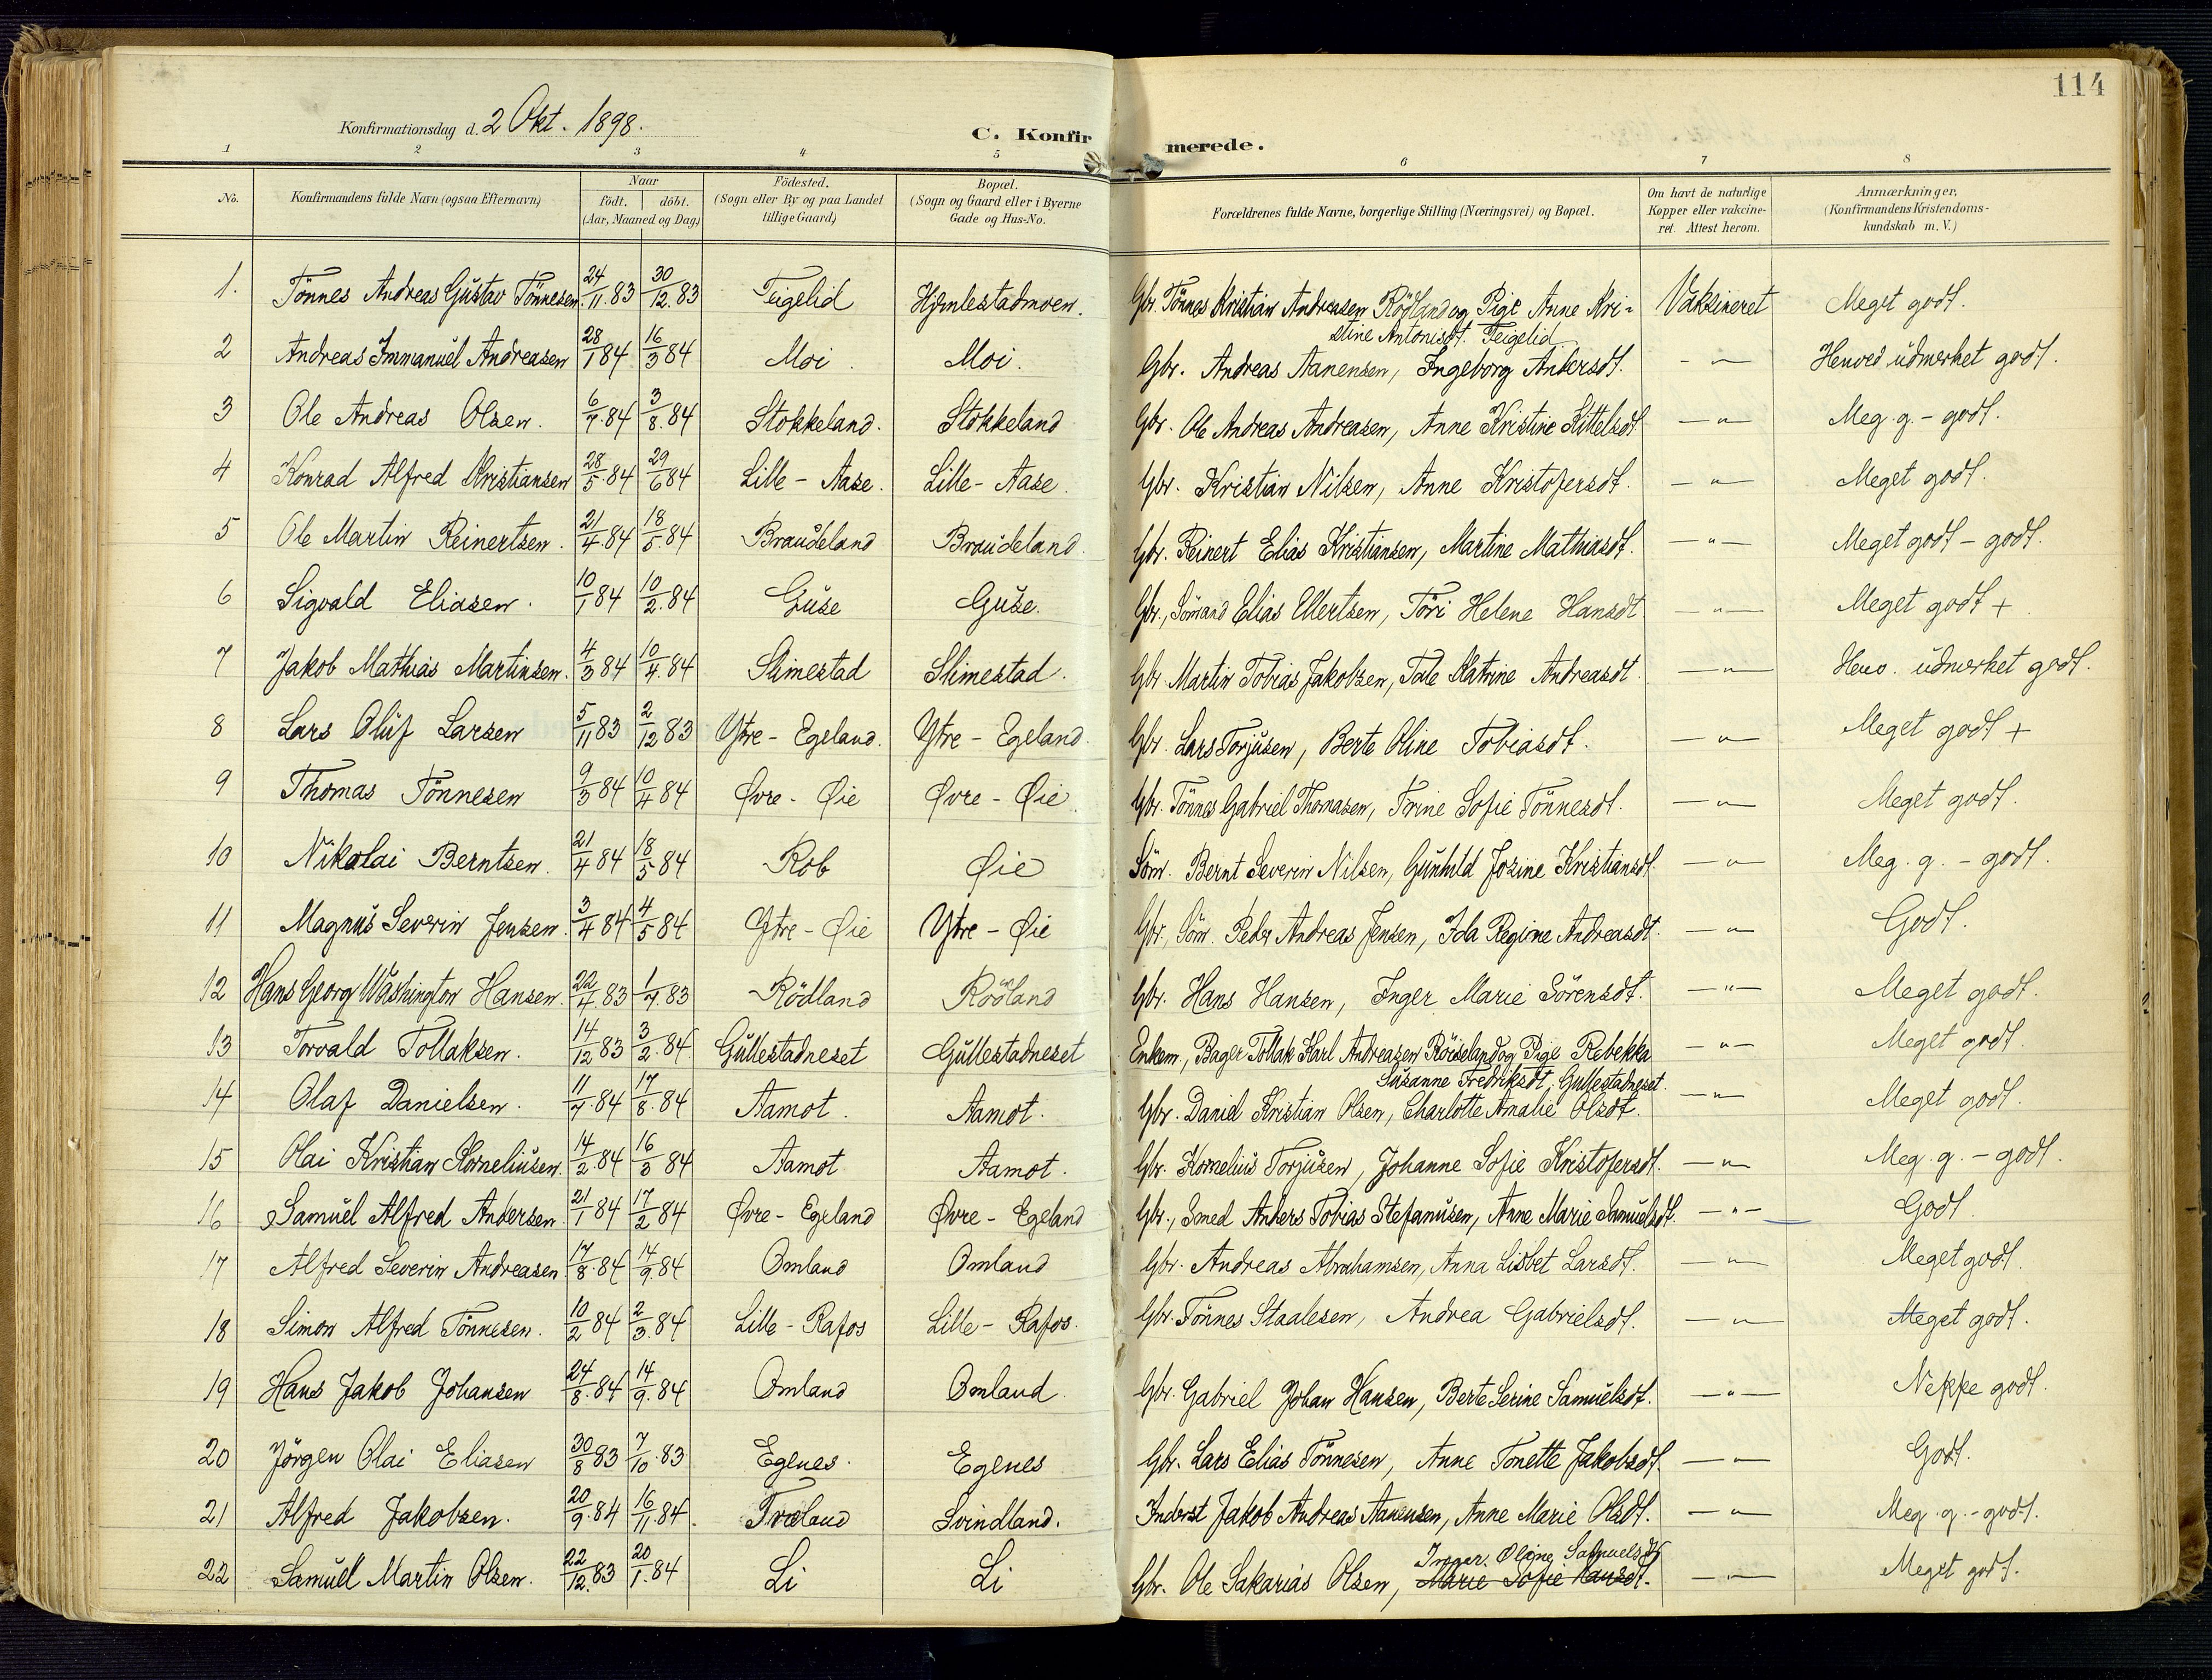 114
Konfirmationsdag d. 2 Okt. 1898.
C. Konfirmerede.
1 2 3 4 5 6 7 8
No. | Konfirmandens fulde Navn (ogsaa Efternavn) | Naar født. døbt. (Aar, Maaned og Dag) | Födested. (Sogn eller By og paa Landet tillige Gaard) | Bopæl. (Sogn og Gaard eller i Byerne Gade og Hus-No. | Forældrenes fulde Navne, borgerlige Stilling (Næringsvei) og Bopæl. | Om havt de naturlige Kopper eller vakcineret. Attest herom. | Anmærkninger. (Konfirmandens Kristendomskundskab m. V.)
1. Tönnes Andreas Gustav Tönnesen. 24/11.83 30/12.83 Feigelid Hjemlestadmoen. Gbr. Tönnes Kristian Andreasen Rödland og Pige Anne Kri-
stine Antonisdt. Feigelid Vaksineret Meget godt.
2 Andreas Immanuel Andreasen 28/1 84 16/3 84 Moi. Moi. Gbr. Andreas Aanensen, Ingeborg Andersdt. — " — Henved udmerket godt.
3 Ole Andreas Olsen. 6/7.84 3/8.84 Stokkeland. Stokkeland Gbr. Ole Andreas Andreasen, Anne Kristine Kittelsdt — " — Meg. g. - godt.
4 Konrad Alfred Kristiansen 28/5.84 29/6 84 Lille - Aase. Lille - Aase. Gbr. Kristian Nilsen, Anne Kristofersdt. — " — Meget godt.
5 Ole Martin Reinertsen. 21/4.84 18/5.84 Braudeland Braudeland. Gbr. Reinert Elias Kristiansen, Martine Mathiasdt. — " — Meget godt - godt.
6 Sigvald Eliasen. 10/1 84 10/2.84 Guse Guse. Gbr., Sömand Elias Ellertsen, Töri Helene Hansdt — " — Meget godt +
7 Jakob Mathias Martinsen. 4/3 84 10/4.84 Slimestad Slimestad. Gbr. Martin Tobias Jakobsen, Tale Katrine Andreasdt. — " — Henv. udmerket godt.
8 Lars Oluf Larsen 5/11 83 2/12 83 Ytre - Egeland. Ytre - Egeland. Gbr. Lars Torjusen, Berte Oline Tobiasdt. — " — Meget godt +
9 Thomas Tönnesen 9/3 84 10/4 84 Øvre - Øie Øvre - Øie. Gbr. Tönnes Gabriel Thomasen, Trine Sofie Tönnesdt. — " — Meget godt.
10 Nikolai Berntsen. 21/4 84 18/5 84 Rob Øie Söm. Bernt Severin Nilsen, Gunhild Josine Kristiansdt. — " — Meg. g. - godt.
11 Magnus Severin Jensen. 3/4 84 4/5 84 Ytre - Øie Ytre - Øie Gbr., Söm. Peder Andreas Jensen, Ida Regine Andreasdt. — " — Godt.
12 Hans Georg Washington Hansen. 22/4 83 1/7.83 Rödland Rödland Gbr. Hans Hansen, Inger Marie Sörensdt. — " — Meget godt.
13 Torvald Tollaksen. 14/12 83 3/2.84 Gullestadneset Gullestadneset Enkem., Bager Tollak Karl Andreasen Röiseland og Pige Rebekka
Susanne Fredriksdt, Gullestadneset. — " — Meget godt.
14 Olaf Danielsen. 11/7.84 17/8.84 Aamot. Aamot. Gbr. Daniel Kristian Olsen, Charlotte Amalie Olsdt. — " — Meget godt.
15 Olai Kristian Korneliusen. 14/2.84 16/3 84 Aamot Aamot. Gbr. Kornelius Torjusen, Johanne Sofie Kristofersdt. — " — Meg. g. - godt.
16 Samuel Alfred Andersen 21/1 84 17/2 84 Øvre - Egeland Øvre - Egeland Gbr., Smed Anders Tobias Stefanusen, Anne Marie Samuelsdt. — " — Godt
17 Alfred Severin Andreasen 17/8.84 14/9.84 Omland Omland Gbr. Andreas Abrahamsen, Anna Lisbet Larsdt. — " — Meget godt.
18 Simon Alfred Tönnesen. 10/2 84 2/3.84 Lille - Rafos Lille - Rafos. Gbr. Tönnes Staalesen, Andrea Gabrielsdt. — " — Meget godt.
19 Hans Jakob Johansen 24/8.84 14/9.84 Omland Omland. Gbr. Gabriel Johan Hansen, Berte Serine Samuelsdt. — " — Neppe godt.
20 Jörgen Olai Eliasen 30/8 83 7/10.83 Egenes. Egenes Gbr. Lars Elias Tönnesen, Anne Tonette Jakobsdt. — " — Godt.
21 Alfred Jakobsen. 20/9.84 16/11.84. Træland Svindland. Inderst Jakob Andreas Aanensen, Anne Marie Olsdt. — " — Meg. g. - godt.
22 Samuel Martin Olsen. 22/12.83 20/1.84 Li Li Gbr. Ole Sakarias Olsen, Inger Oline Samuelsdt
Marie Sofie Hansdt. — " — Meget godt.